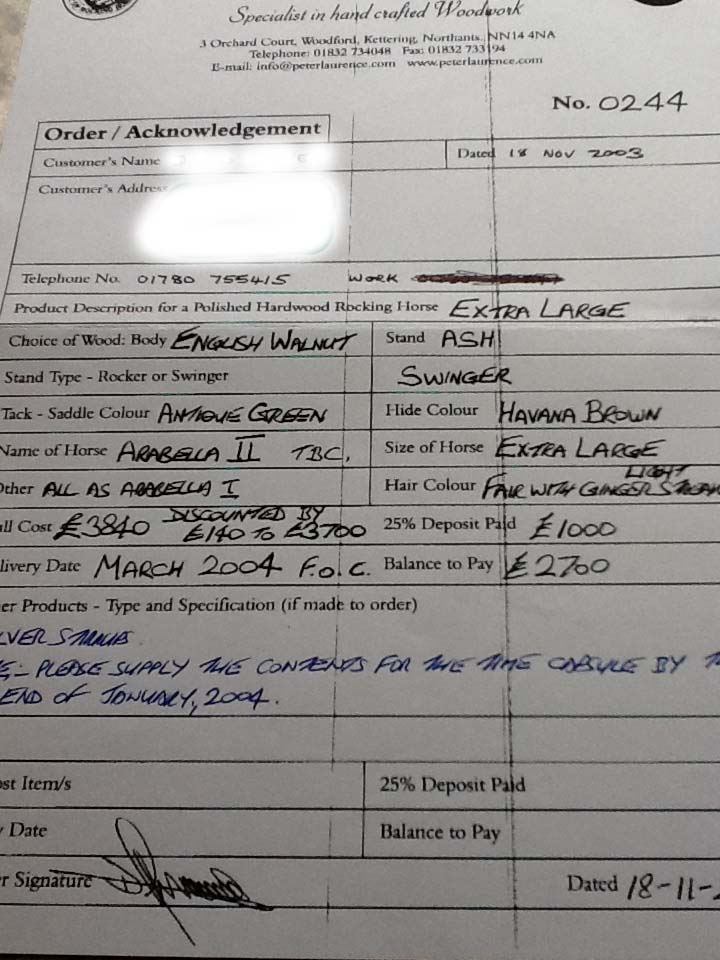 Specialist in hand crafted Woodwork
3 Orchard Court, Woodford, Kettering, Northants. NN14 4NA
Telephone: 01832 734048 Fax: 01832 733194
E-mail: info@peterlaurence.com www.peterlaurence.com
No. 0244
Order / Acknowledgement
Customer's Name
Dated 18 NOV 2003
Customer's Address
Telephone No. 01780 755415 WORK
Product Description for a Polished Hardwood Rocking Horse EXTRA LARGE
Choice of Wood: Body ENGLISH WALNUT Stand ASH
Stand Type - Rocker or Swinger SWINGER
Tack - Saddle Colour ANTIQUE GREEN Hide Colour HAVANA BROWN
Name of Horse ARABELLA II TBC. Size of Horse EXTRA LARGE
Other ALL AS ARABELLA I Hair Colour FAIR WITH LIGHT GINGER
ull Cost £3840 DISCOUNTED BY £140 TO £3700 25% Deposit Paid £1000
livery Date MARCH 2004 F.O.C. Balance to Pay £2700
er Products - Type and Specification (if made to order)
LVER
E:- PLEASE SUPPLY THE CONTENTS FOR THE TIME CAPSULE BY
END OF JANUARY, 2004.
ost Item/s 25% Deposit Paid
Date Balance to Pay
r Signature Dated 18-11-